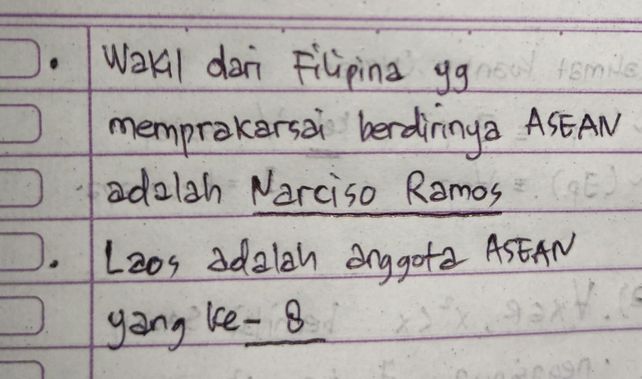 • Wakil dari Filipina yg
memprakarsai berdirinya ASEAN
adalah Narciso Ramos
• Laos adalah anggota ASEAN
yang ke-8